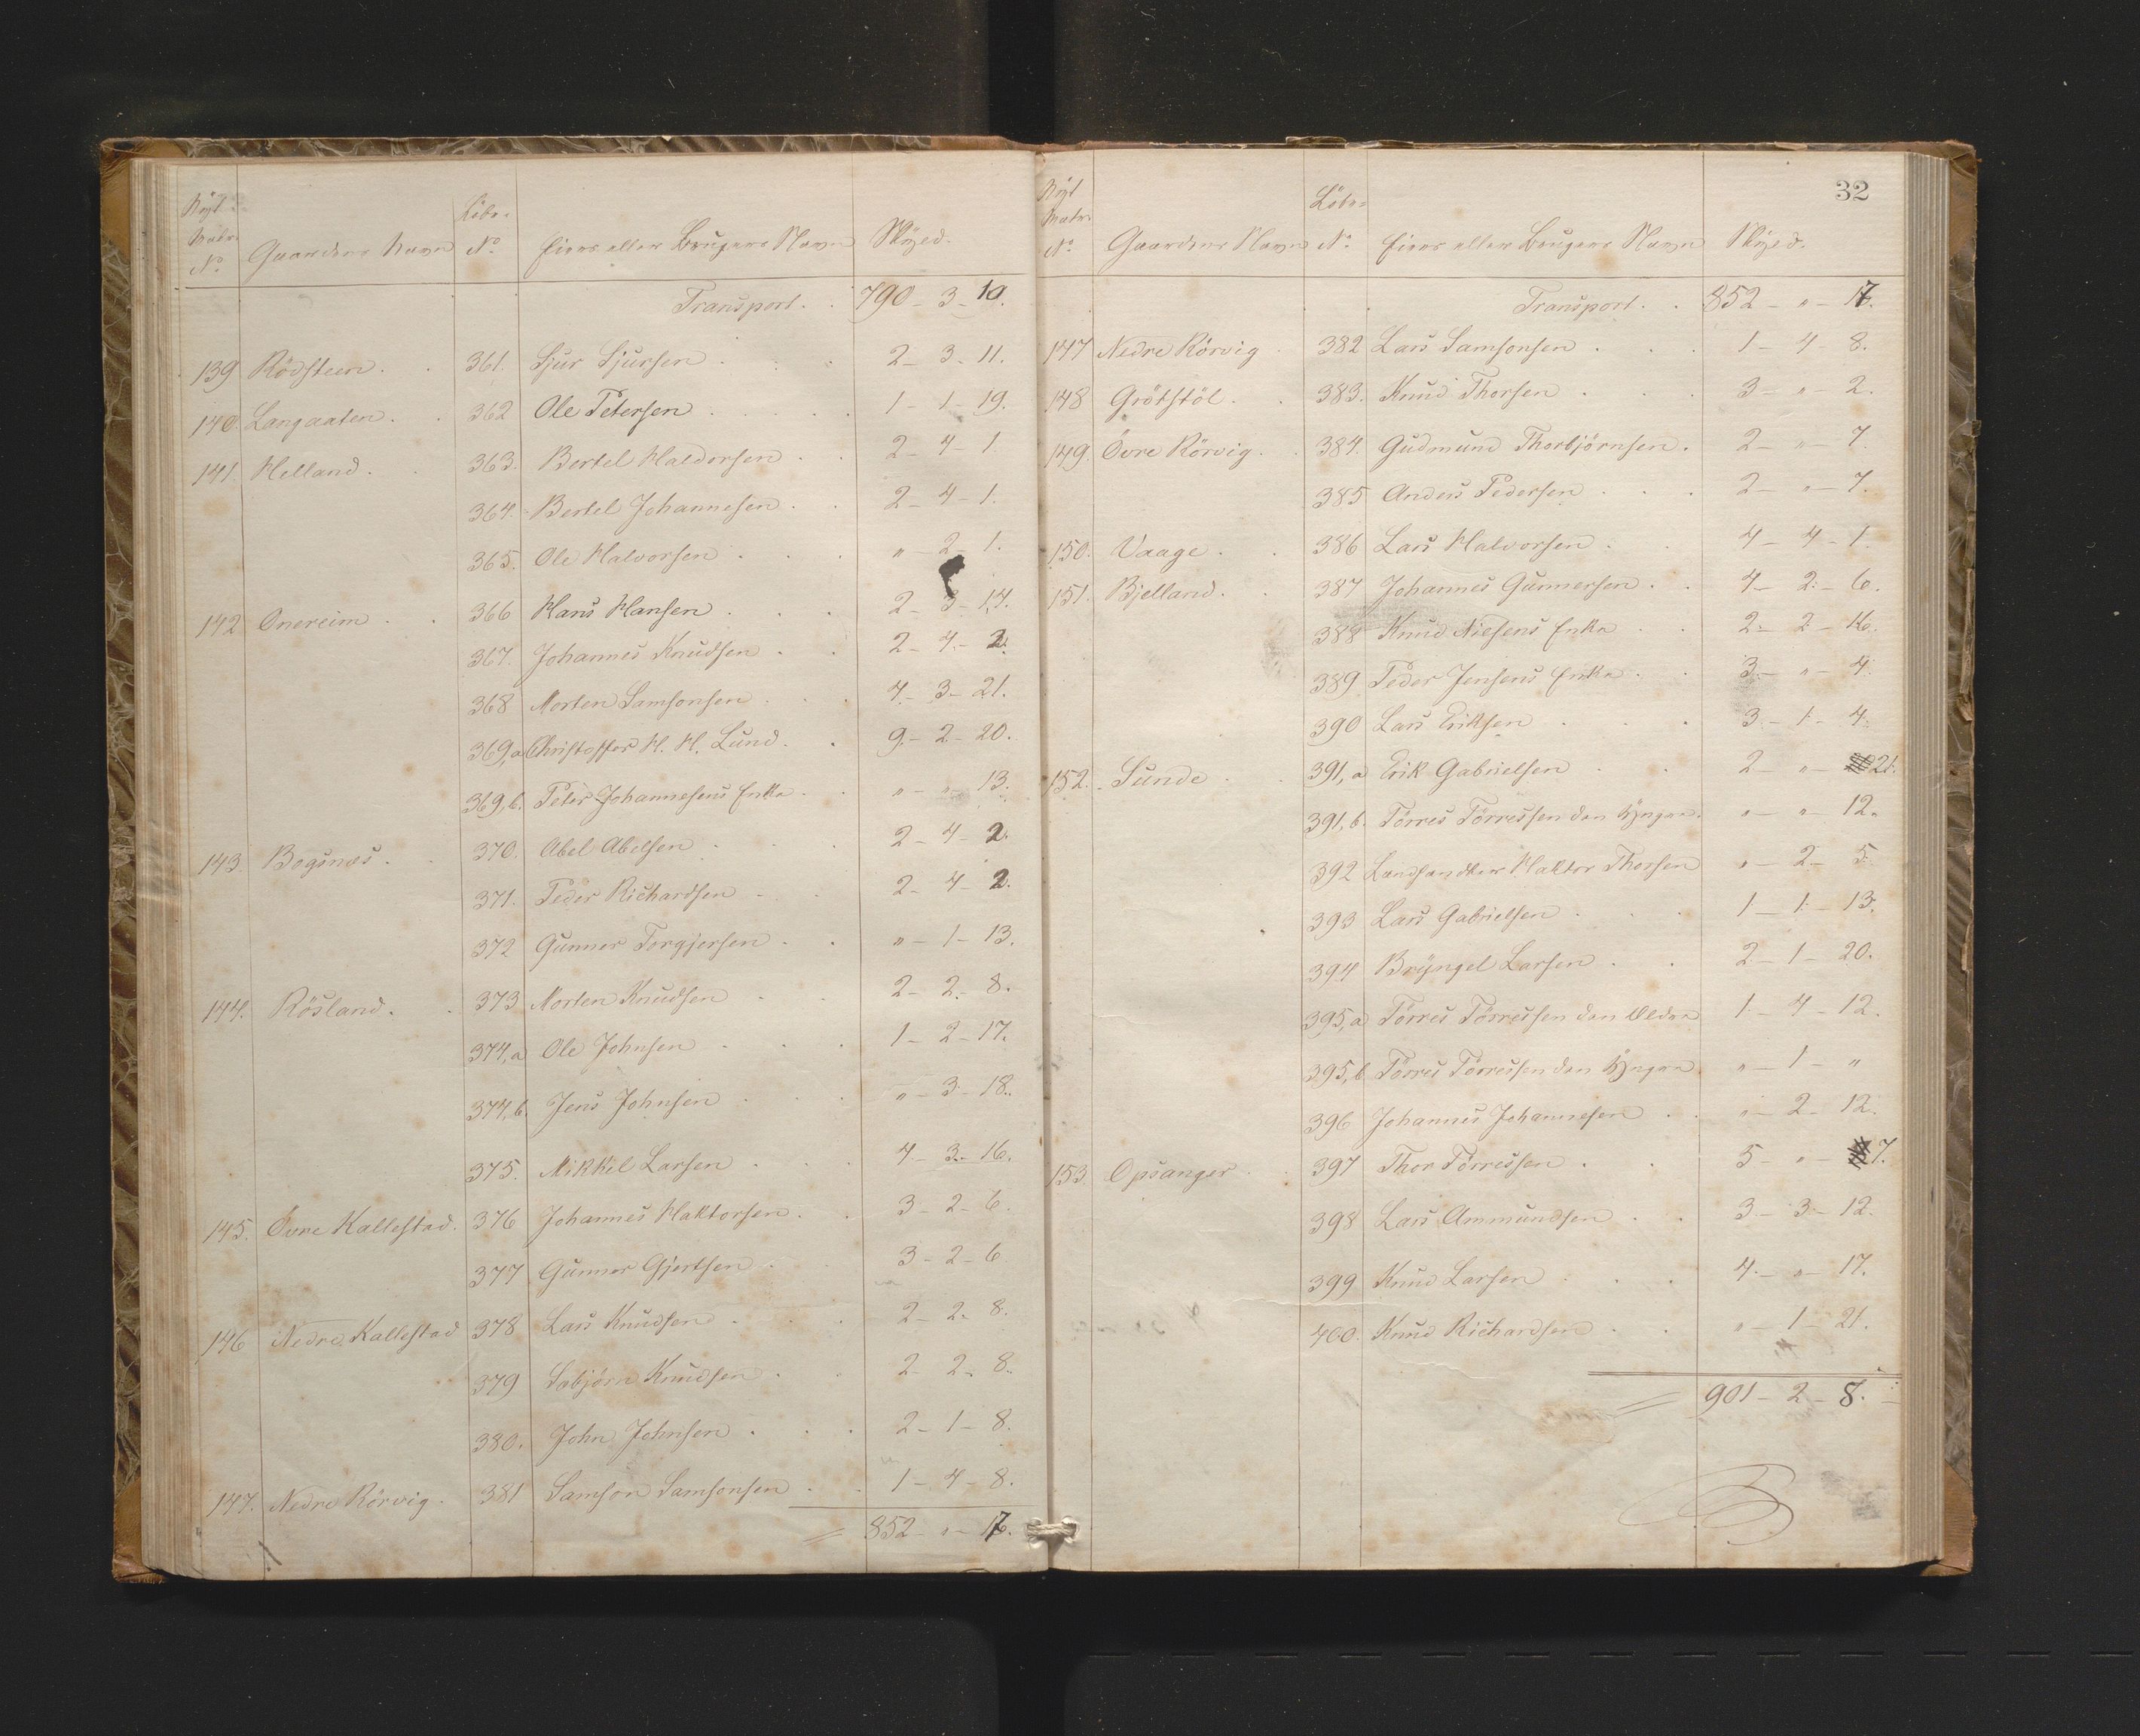 Nyt Matr. No Gaardens Navn Löbe- No Eiers eller Brugers Navn Skyld.
Transport . . 790 - 3 - 10.
139 Rödsteen . . 361. Sjur Sjursen . . . 2 - 3 - 11.
140. Langaaten . . 362 Ole Petersen . . . . 1 - 1 - 19.
141. Helland . . 363. Bertel Haldorsen . . 2 - 4 - 1
364. Bertel Johannesen . . 2 - 4 - 1.
365. Ole Halvorsen . . . " - 2 - 1.
142 Onereim . . 366 Hans Hansen . . . 2 - 3 - 14.
367. Johannes Knudsen . . 2 - 4 - 2.
368 Morten Samsonsen . . . 4 - 3 - 21.
369,a Christoffer H. H. Lund . . 9 - 2 - 20.
369,b. Peter Johannesens Enke . . " - " - 13.
143. Bogsnæs . . 370. Abel Abelsen . . . 2 - 4 - 2.
371. Peder Richardsen . . 2 - 4 - 2.
372 Gunner Torgjersen . . " - 1 - 13.
144. Rösland . . 373 Morten Knudsen . . 2 - 2 - 8.
374,a Ole Johnsen . . . 1 - 2 - 17.
374,b. Jens Johnsen . . . " - 3 - 18.
375. Mikkel Larsen . . . 4 - 3 - 16.
145. Övre Kallestad . 376 Johannes Haktorsen . . 3 - 2 - 6.
377 Gunner Gjertsen . . 3 - 2 - 6
146 Nedre Kallestad 378 Lars Knudsen . . . 2 - 2 - 8.
379 Sebjörn Knudsen . . 2 - 2 - 8.
380. John Johnsen . . . 2 - 1 - 8.
147. Nedre Rörvig . 381 Samson Samsonsen . . 1 - 4 - 8.
= 852 - " - 17.
32
Nyt Matr. No Gaardens Navn Löbe- No Eiers eller Brugers Navn Skyld.
Transport . . 852 - " - 17.
147 Nedre Rörvig . 382 Lars Samsonsen . . . 1 - 4 - 8.
148 Grötstöl . . 383. Knud Thorsen . . . 3 - " - 2.
149. Övre Rörvig . . 384. Gudmund Thorbjörnsen . 2 - " - 7.
385 Anders Pedersen . . . 2 - " - 7.
150. Vaage . . 386 Lars Halvorsen . . 4 - 4 - 1.
151. Bjelland . . 387 Johannes Gunnersen . . 4 - 2 - 6.
388 Knud Nielsens Enke . . 2 - 2 - 16.
389 Peder Jensens Enke . . 3 - " - 4.
390 Lars Eriksen . . . 3 - 1 - 4.
152. Sunde . . 391,a Erik Gabrielsen . . 2 - " - 21.
391,b. Törres Törressen den Yngre . " - " - 12.
392 Landhandler Haktor Thorsen " - 2 - 5.
393 Lars Gabrielsen . . . 1 - 1 - 13.
394 Bryngel Larsen . . 2 - 1 - 20.
395,a Törres Törressen den Ældre 1 - 4 - 12.
395,b Törres Törressen den Yngre " - 1 - "
396 Johannes Johannesen . . " - 2 - 12.
153. Opsanger . . 397 Thor Törressen . . 5 - " - 7.
398 Lars Ammundsen . . 3 - 3 - 12.
399 Knud Larsen . . . 4 - " - 17.
400. Knud Richardsen . . " - 1 - 21.
= 901 - 2 - 8.